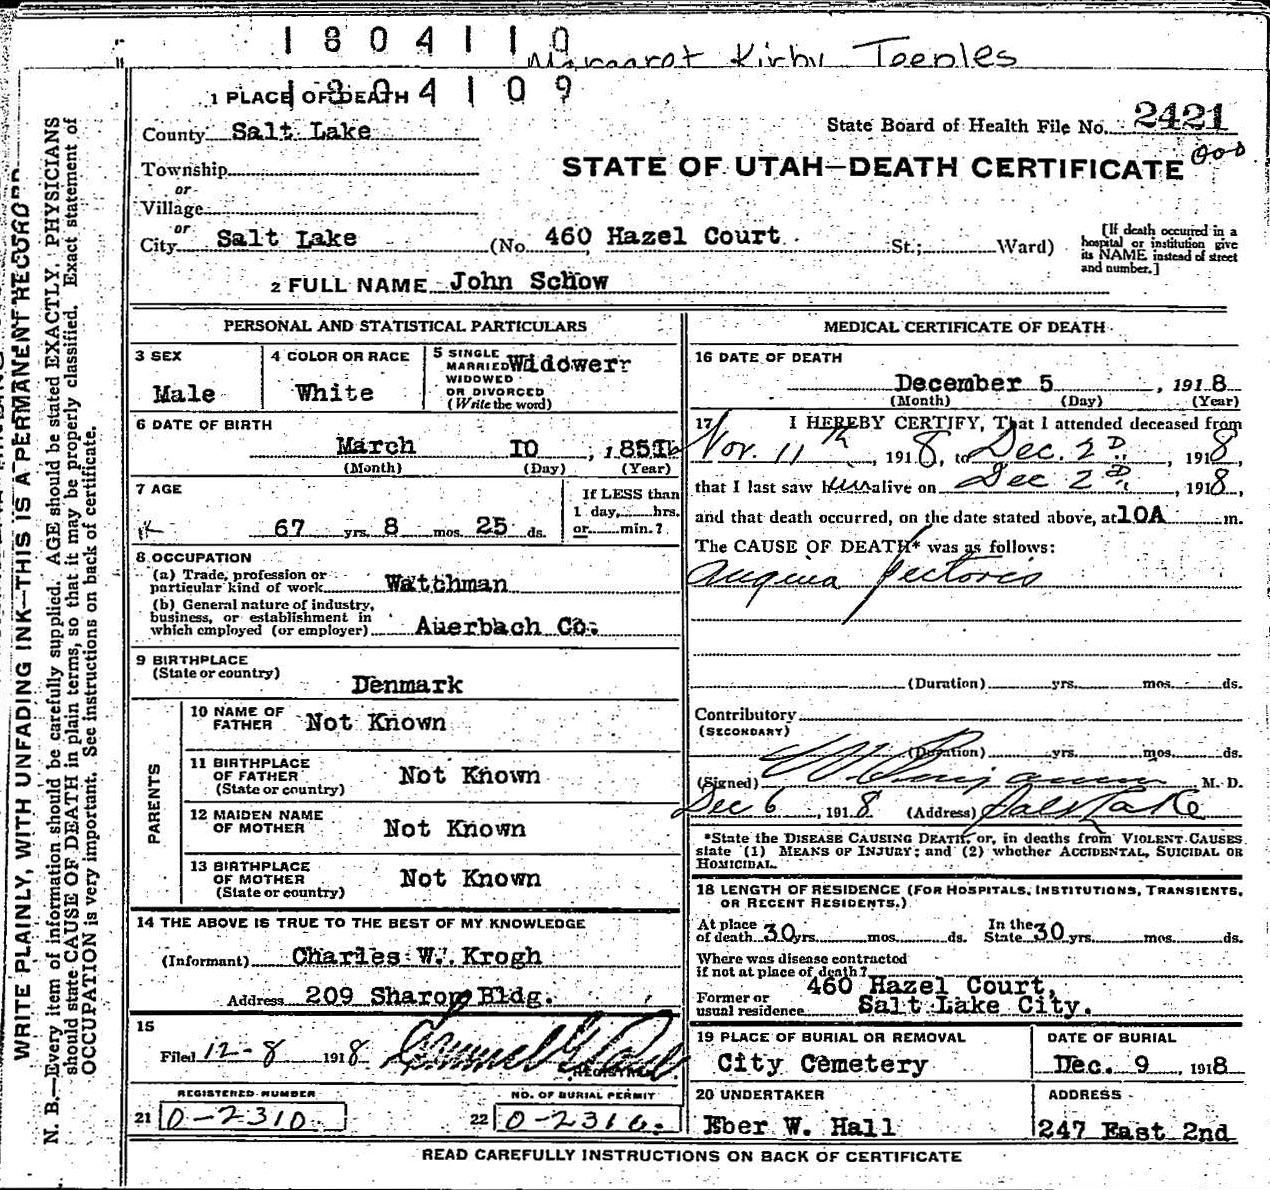 1804110
Margaret Kirby Teeples
1804109
1 PLACE OF DEATH
County Salt Lake
State Board of Health File No. 2421
Township
STATE OF UTAH—DEATH CERTIFICATE
or
Village
or
City Salt Lake (No. 460 Hazel Court St.; Ward)
[If death occurred in a
hospital or institution give
its NAME instead of street
and number.]
2 FULL NAME John Schow
PERSONAL AND STATISTICAL PARTICULARS
3 SEX
Male
4 COLOR OR RACE
White
5 SINGLE
MARRIED Widowerr
WIDOWED
OR DIVORCED
(Write the word)
6 DATE OF BIRTH
March 10, 1851
(Month) (Day) (Year)
7 AGE
67 yrs. 8 mos. 25 ds.
If LESS than
1 day, hrs.
or min.?
8 OCCUPATION
(a) Trade, profession or
particular kind of work Watchman
(b) General nature of industry,
business, or establishment in
which employed (or employer) Auerbach Co.
9 BIRTHPLACE
(State or country)
Denmark
PARENTS
10 NAME OF
FATHER Not Known
11 BIRTHPLACE
OF FATHER Not Known
(State or country)
12 MAIDEN NAME
OF MOTHER Not Known
13 BIRTHPLACE
OF MOTHER Not Known
(State or country)
14 THE ABOVE IS TRUE TO THE BEST OF MY KNOWLEDGE
(Informant) Charles W. Krogh
Address 209 Sharon Bldg.
15
Filed 12-8 1918
REGISTRAR
REGISTERED NUMBER
21 0-2310
NO. OF BURIAL PERMIT
22 0-2316
MEDICAL CERTIFICATE OF DEATH
16 DATE OF DEATH
December 5, 1918
(Month) (Day) (Year)
17 I HEREBY CERTIFY, That I attended deceased from
Nov. 11th, 1918, to Dec. 2D, 1918,
that I last saw him alive on Dec 2D, 1918,
and that death occurred, on the date stated above, at 10A m.
The CAUSE OF DEATH* was as follows:
Angina Pectoris
(Duration) yrs. mos. ds.
Contributory
(SECONDARY)
(Duration) yrs. mos. ds.
(Signed) M. D.
Dec 6, 1918. (Address) Salt Lake
*State the DISEASE CAUSING DEATH, or, in deaths from VIOLENT CAUSES
state (1) MEANS OF INJURY; and (2) whether ACCIDENTAL, SUICIDAL OR
HOMICIDAL.
18 LENGTH OF RESIDENCE (FOR HOSPITALS, INSTITUTIONS, TRANSIENTS,
OR RECENT RESIDENTS.)
At place In the
of death 30 yrs. mos. ds. State 30 yrs. mos. ds.
Where was disease contracted
if not at place of death?
460 Hazel Court,
Former or
usual residence Salt Lake City.
19 PLACE OF BURIAL OR REMOVAL
City Cemetery
DATE OF BURIAL
Dec. 9, 1918
20 UNDERTAKER
Eber W. Hall
ADDRESS
247 East 2nd
READ CAREFULLY INSTRUCTIONS ON BACK OF CERTIFICATE
WRITE PLAINLY, WITH UNFADING INK—THIS IS A PERMANENT RECORD
N. B.—Every item of information should be carefully supplied. AGE should be stated EXACTLY. PHYSICIANS
should state CAUSE OF DEATH in plain terms, so that it may be properly classified. Exact statement of
OCCUPATION is very important. See instructions on back of certificate.